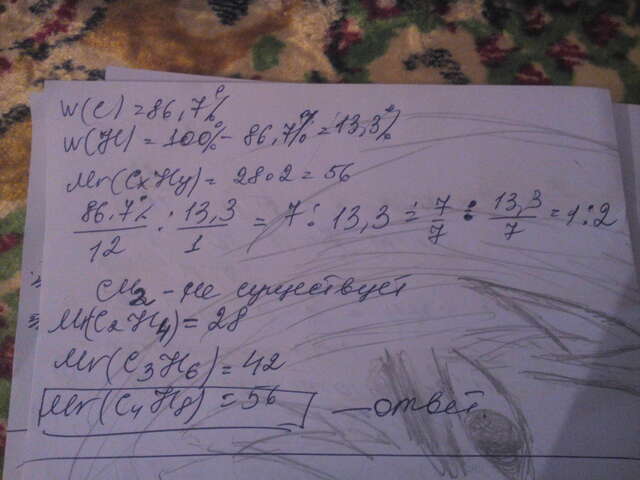 W(C) = 86,7%
W(H) = 100% - 86,7% = 13,3%
Mr(CxHy) = 28·2 = 56
86.7% / 12 : 13,3 / 1 = 7 : 13,3 = 7/7 : 13,3/7 = 1:2
CH2 - не существует
Mr(C2H4) = 28
Mr(C3H6) = 42
Mr(C4H8) = 56 — ответ.